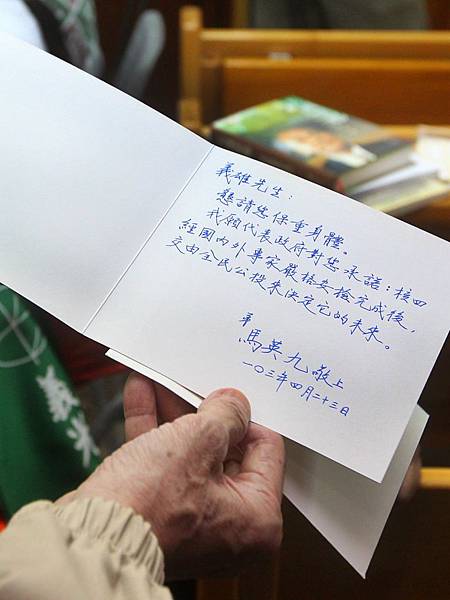 義雄先生：
懇請您保重身體。
我願代表政府對您承諾：核四
經國內外專家嚴格安檢完成後，
交由全民公投來決定它的未來。
弟
馬英九敬上
一〇三年四月二十三日
義光